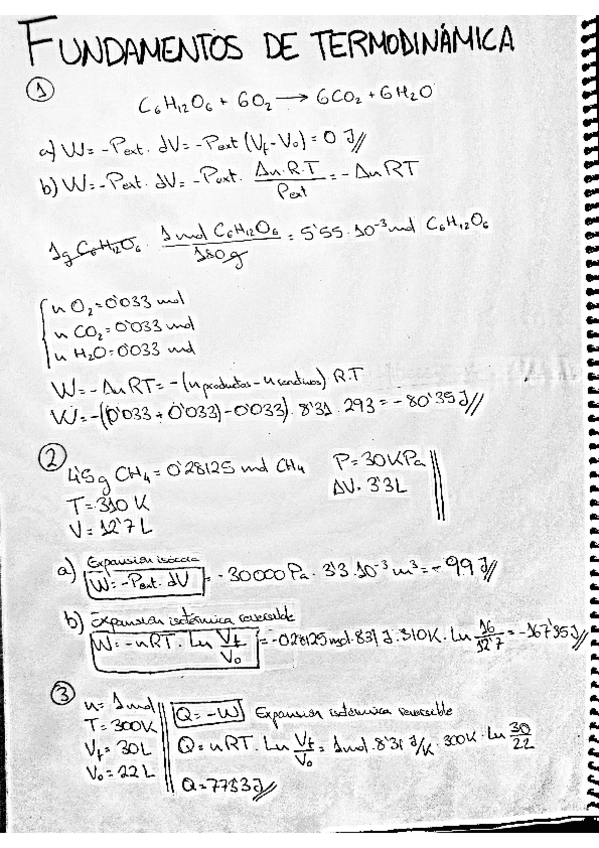 FUNDAMENTOS DE TERMODINÁMICA
①
C₆H₁₂O₆ + 6O₂ → 6CO₂ + 6H₂O
a) W = -Pext · dV = -Pext (Vf - V₀) = 0 J//
b) W = -Pext · dV = -Pext · Δn·R·T / Pext = -ΔnRT
1g C₆H₁₂O₆ · 1 mol C₆H₁₂O₆ / 180g = 5'55·10⁻³ mol C₆H₁₂O₆
n O₂ = 0'033 mol
n CO₂ = 0'033 mol
n H₂O = 0'033 mol
W = -ΔnRT = -(n productos - n reactivos) R.T
W = -((0'033 + 0'033) - 0'033) · 8'31 · 293 = -80'35 J//
②
4'5 g CH₄ = 0'28125 mol CH₄ P = 30 KPa
T = 310 K ΔV = 3'3 L
V = 12'7 L
a) Expansión isócora
W = -Pext · dV = -30000 Pa · 3'3·10⁻³ m³ = -99 J//
b) Expansión isotérmica reversible
W = -nRT · Ln Vf/V₀ = -0'28125 mol · 8'31 J · 310K · Ln 16/12'7 = -167'35 J//
③
n = 1 mol Q = -W Expansión isotérmica reversible
T = 300K
Vf = 30L Q = nRT · Ln Vf/V₀ = 1 mol · 8'31 J/K · 300K · Ln 30/22
V₀ = 22L Q = 773'3 J//